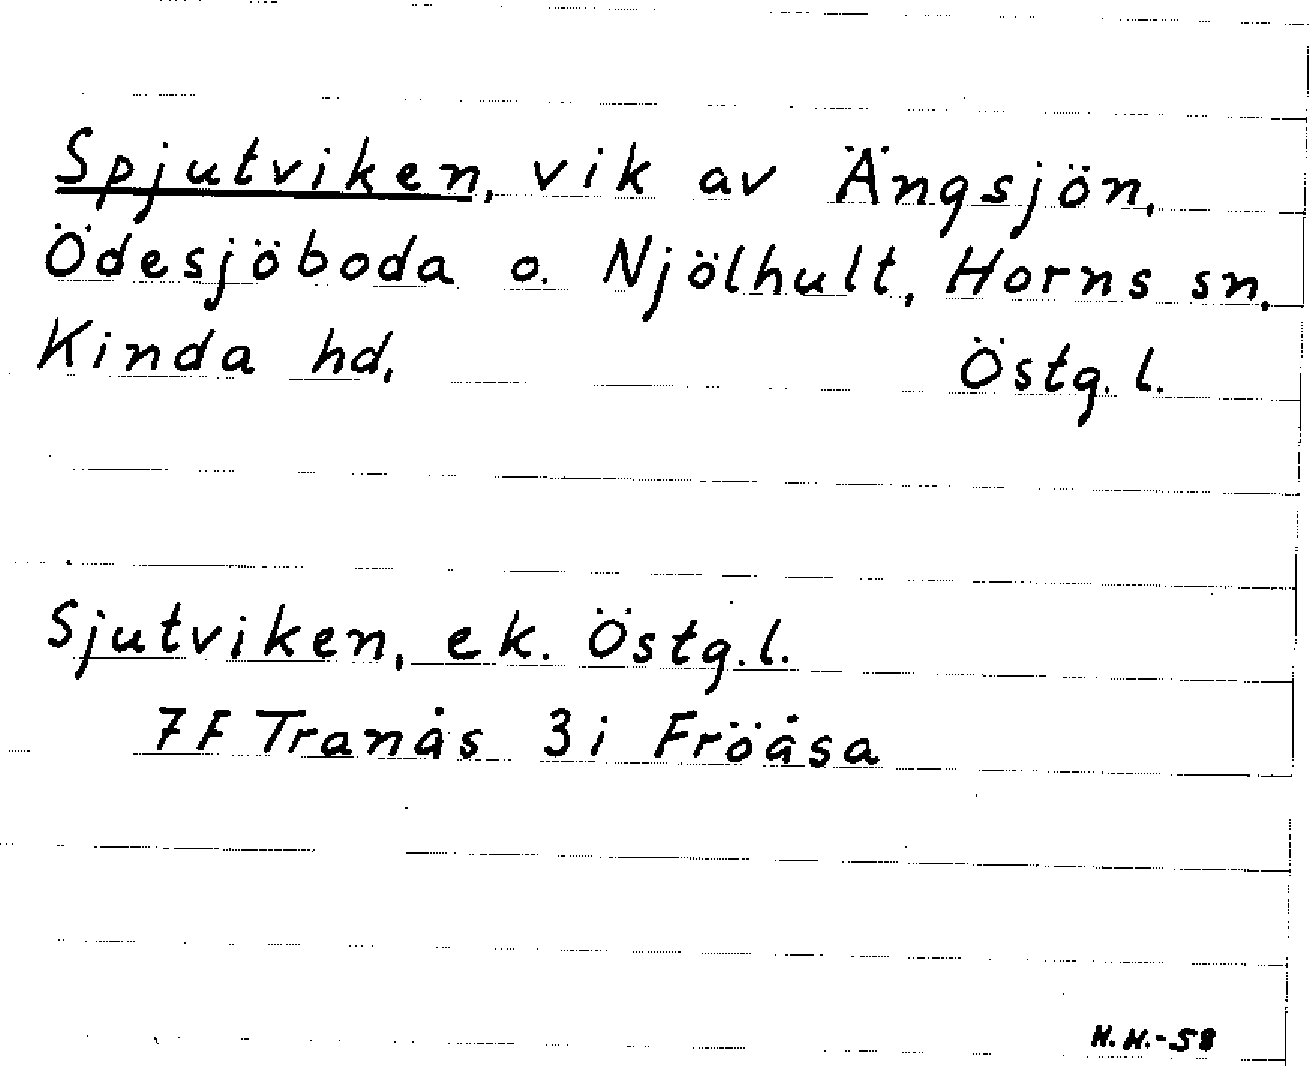 Spjutviken, vik av Ängsjön,
Ödesjöboda o. Njölhult, Horns sn,
Kinda hd, Östg. l.
Sjutviken, ek. Östg. l.
7F Tranås 3i Fröåsa
H.H.-58